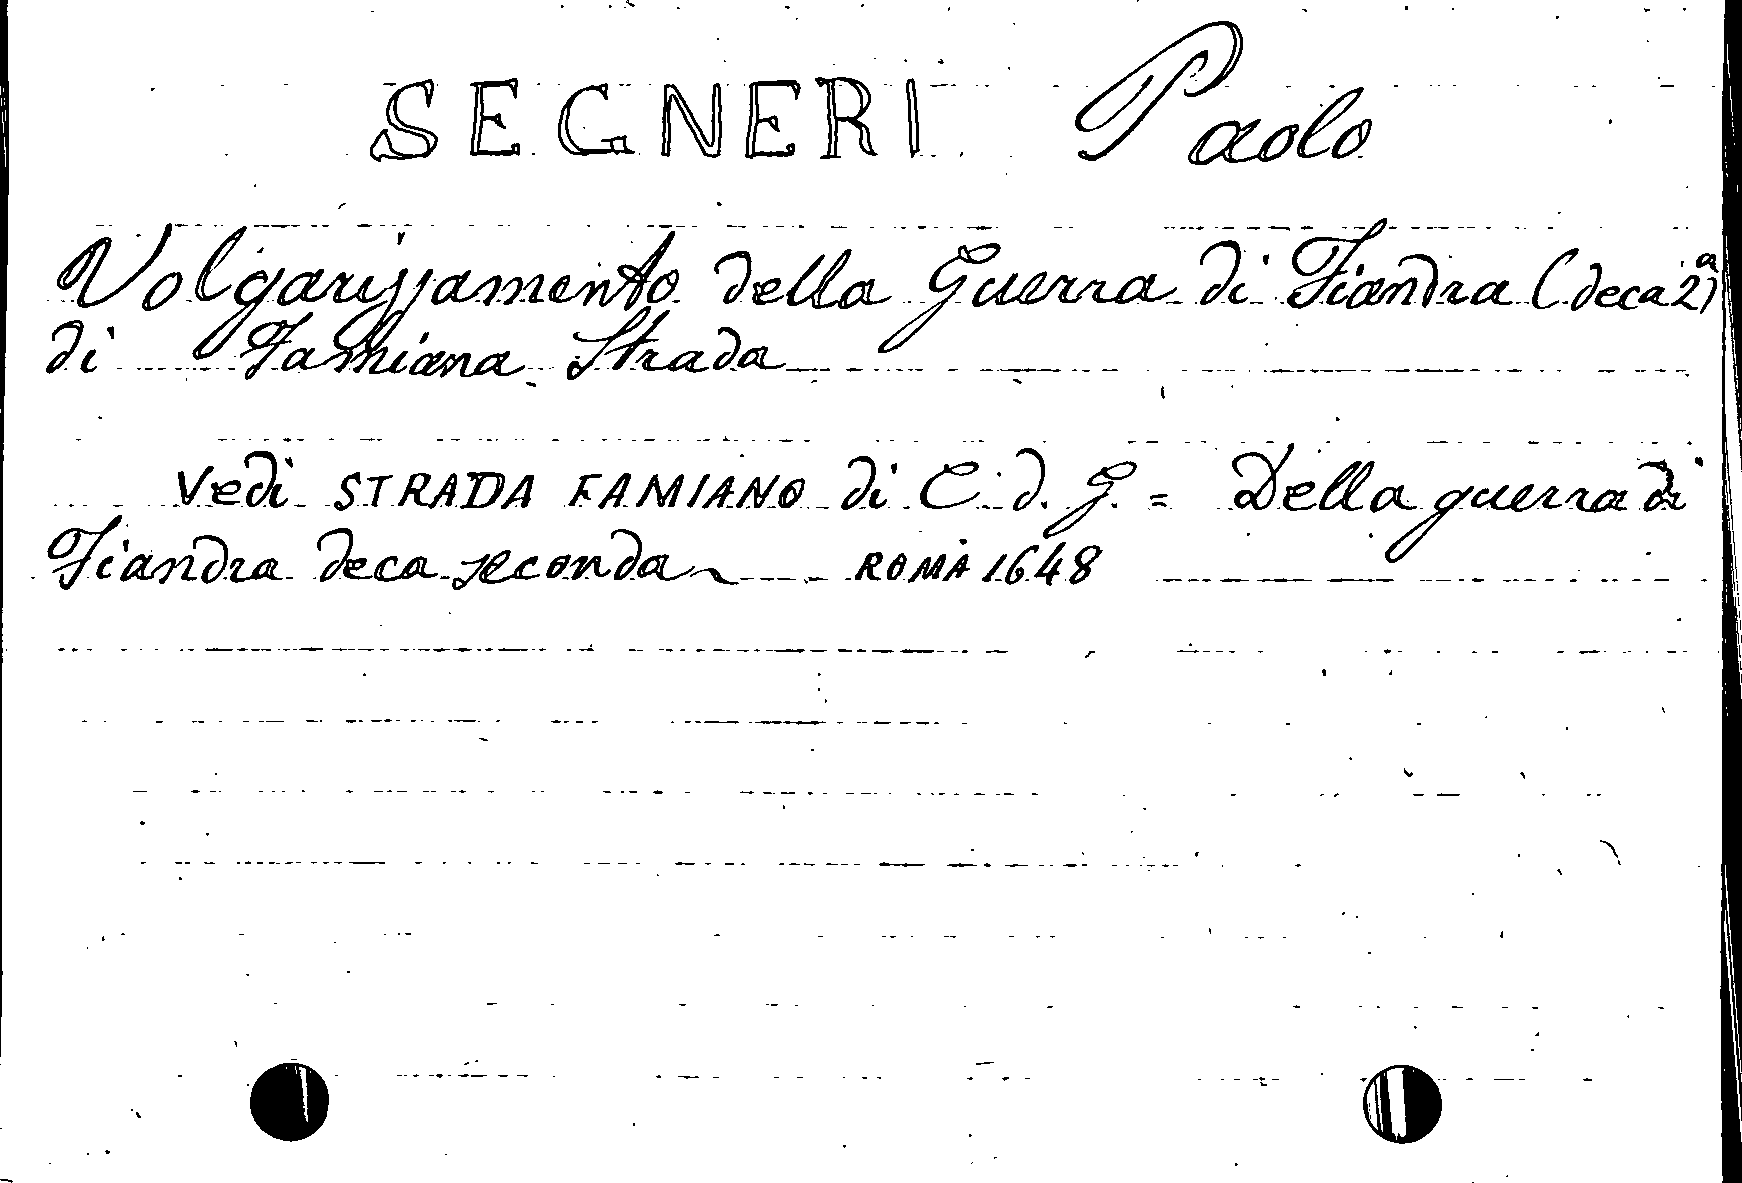 SEGNERI Paolo
Volgarizzamento della Guerra di Fiandra (deca 2ª)
di Famiana Strada
Vedi STRADA FAMIANO di C. d. G. = Della guerra di
Fiandra deca seconda ~ ROMA 1648